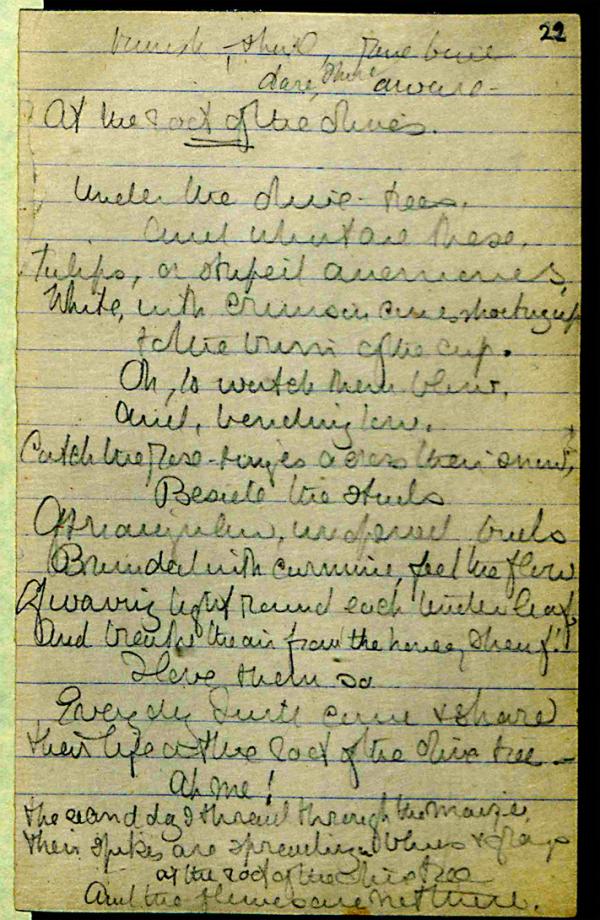 22
dare, share aware -
At the root of the olives.
Under the olive-trees,
And what are these,
tulips, or striped anemones,
White, with crimson cones shooting up
to the brim of the cup.
Oh, to watch them blow,
And, bending low,
Catch the rose-tinges across their snow,
Beside the studs
Of triangular, unopened buds
Branded with carmine, feel the flow
Of waving light round each under leaf
And breathe the air from the honey sheaf!
I love them so
Every day I will come & share
Their life at the root of the olive tree -
Ah me!
The second day I thread through the maize,
Their spikes are spreading blues & grays
at the root of the olive tree
And the flowers are not there.